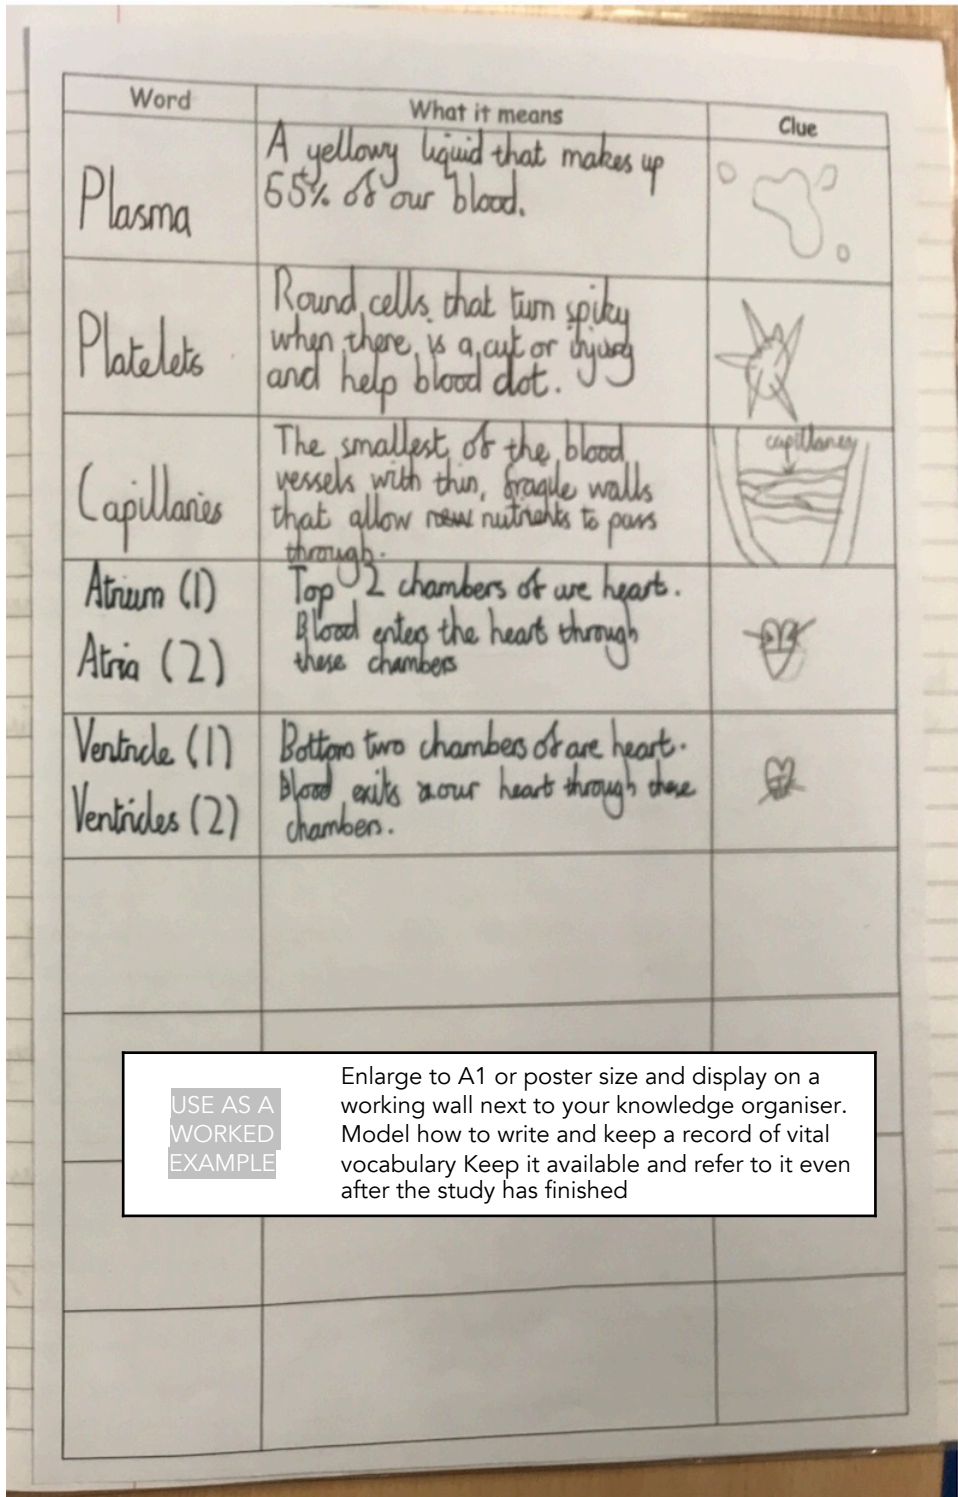 Word
What it means
Clue
Plasma
A yellowy liquid that makes up
55% of our blood.
Platelets
Round cells that turn spiky
when there is a cut or injury
and help blood clot.
Capillaries
The smallest of the blood
vessels with thin, fragile walls
that allow new nutrients to pass
through.
capillaries
Atrium (1)
Atria (2)
Top 2 chambers of are heart.
Blood enters the heart through
these chambers
Ventricle (1)
Ventricles (2)
Bottom two chambers of are heart.
Blood exits our heart through these
chambers.
USE AS A
WORKED
EXAMPLE
Enlarge to A1 or poster size and display on a
working wall next to your knowledge organiser.
Model how to write and keep a record of vital
vocabulary Keep it available and refer to it even
after the study has finished